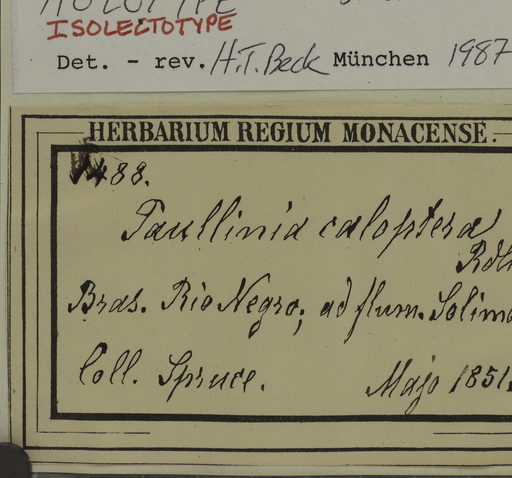 HOLOTYPE
ISOLECTOTYPE
Det. - rev. H.T. Beck München 1987
HERBARIUM REGIUM MONACENSE.
1488.
Paullinia caloptera
Rdlk
Bras. Rio Negro, ad flum. Solimo
Coll. Spruce. Majo 1851.